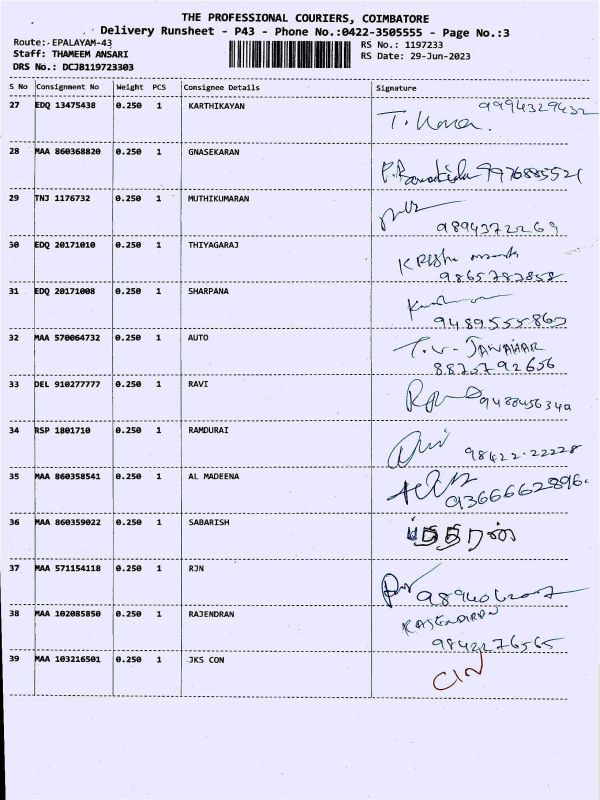 THE PROFESSIONAL COURIERS, COIMBATORE
Delivery Runsheet - P43 - Phone No.:0422-3505555 - Page No.:3
Route:-EPALAYAM-43 RS No.: 1197233
Staff: THAMEEM ANSARI RS Date: 29-Jun-2023
DRS No.: DCJB119723303
S No Consignment No Weight PCS Consignee Details Signature
27 EDQ 13475438 0.250 1 KARTHIKAYAN 9994329432
28 MAA 860368820 0.250 1 GNASEKARAN
9976885521
29 TNJ 1176732 0.250 1 MUTHIKUMARAN
9894372269
30 EDQ 20171010 0.250 1 THIYAGARAJ
9865787858
31 EDQ 20171008 0.250 1 SHARPANA
32 MAA 570064732 0.250 1 AUTO
T.V. JAWAHAR
8870792656
33 DEL 910277777 0.250 1 RAVI
34 RSP 1801710 0.250 1 RAMDURAI
98422.22228
35 MAA 860358541 0.250 1 AL MADEENA
9366662896
36 MAA 860359022 0.250 1 SABARISH
37 MAA 571154118 0.250 1 RJN
38 MAA 102085850 0.250 1 RAJENDRAN
RAJENDRAN
9842276565
39 MAA 103216501 0.250 1 JKS CON